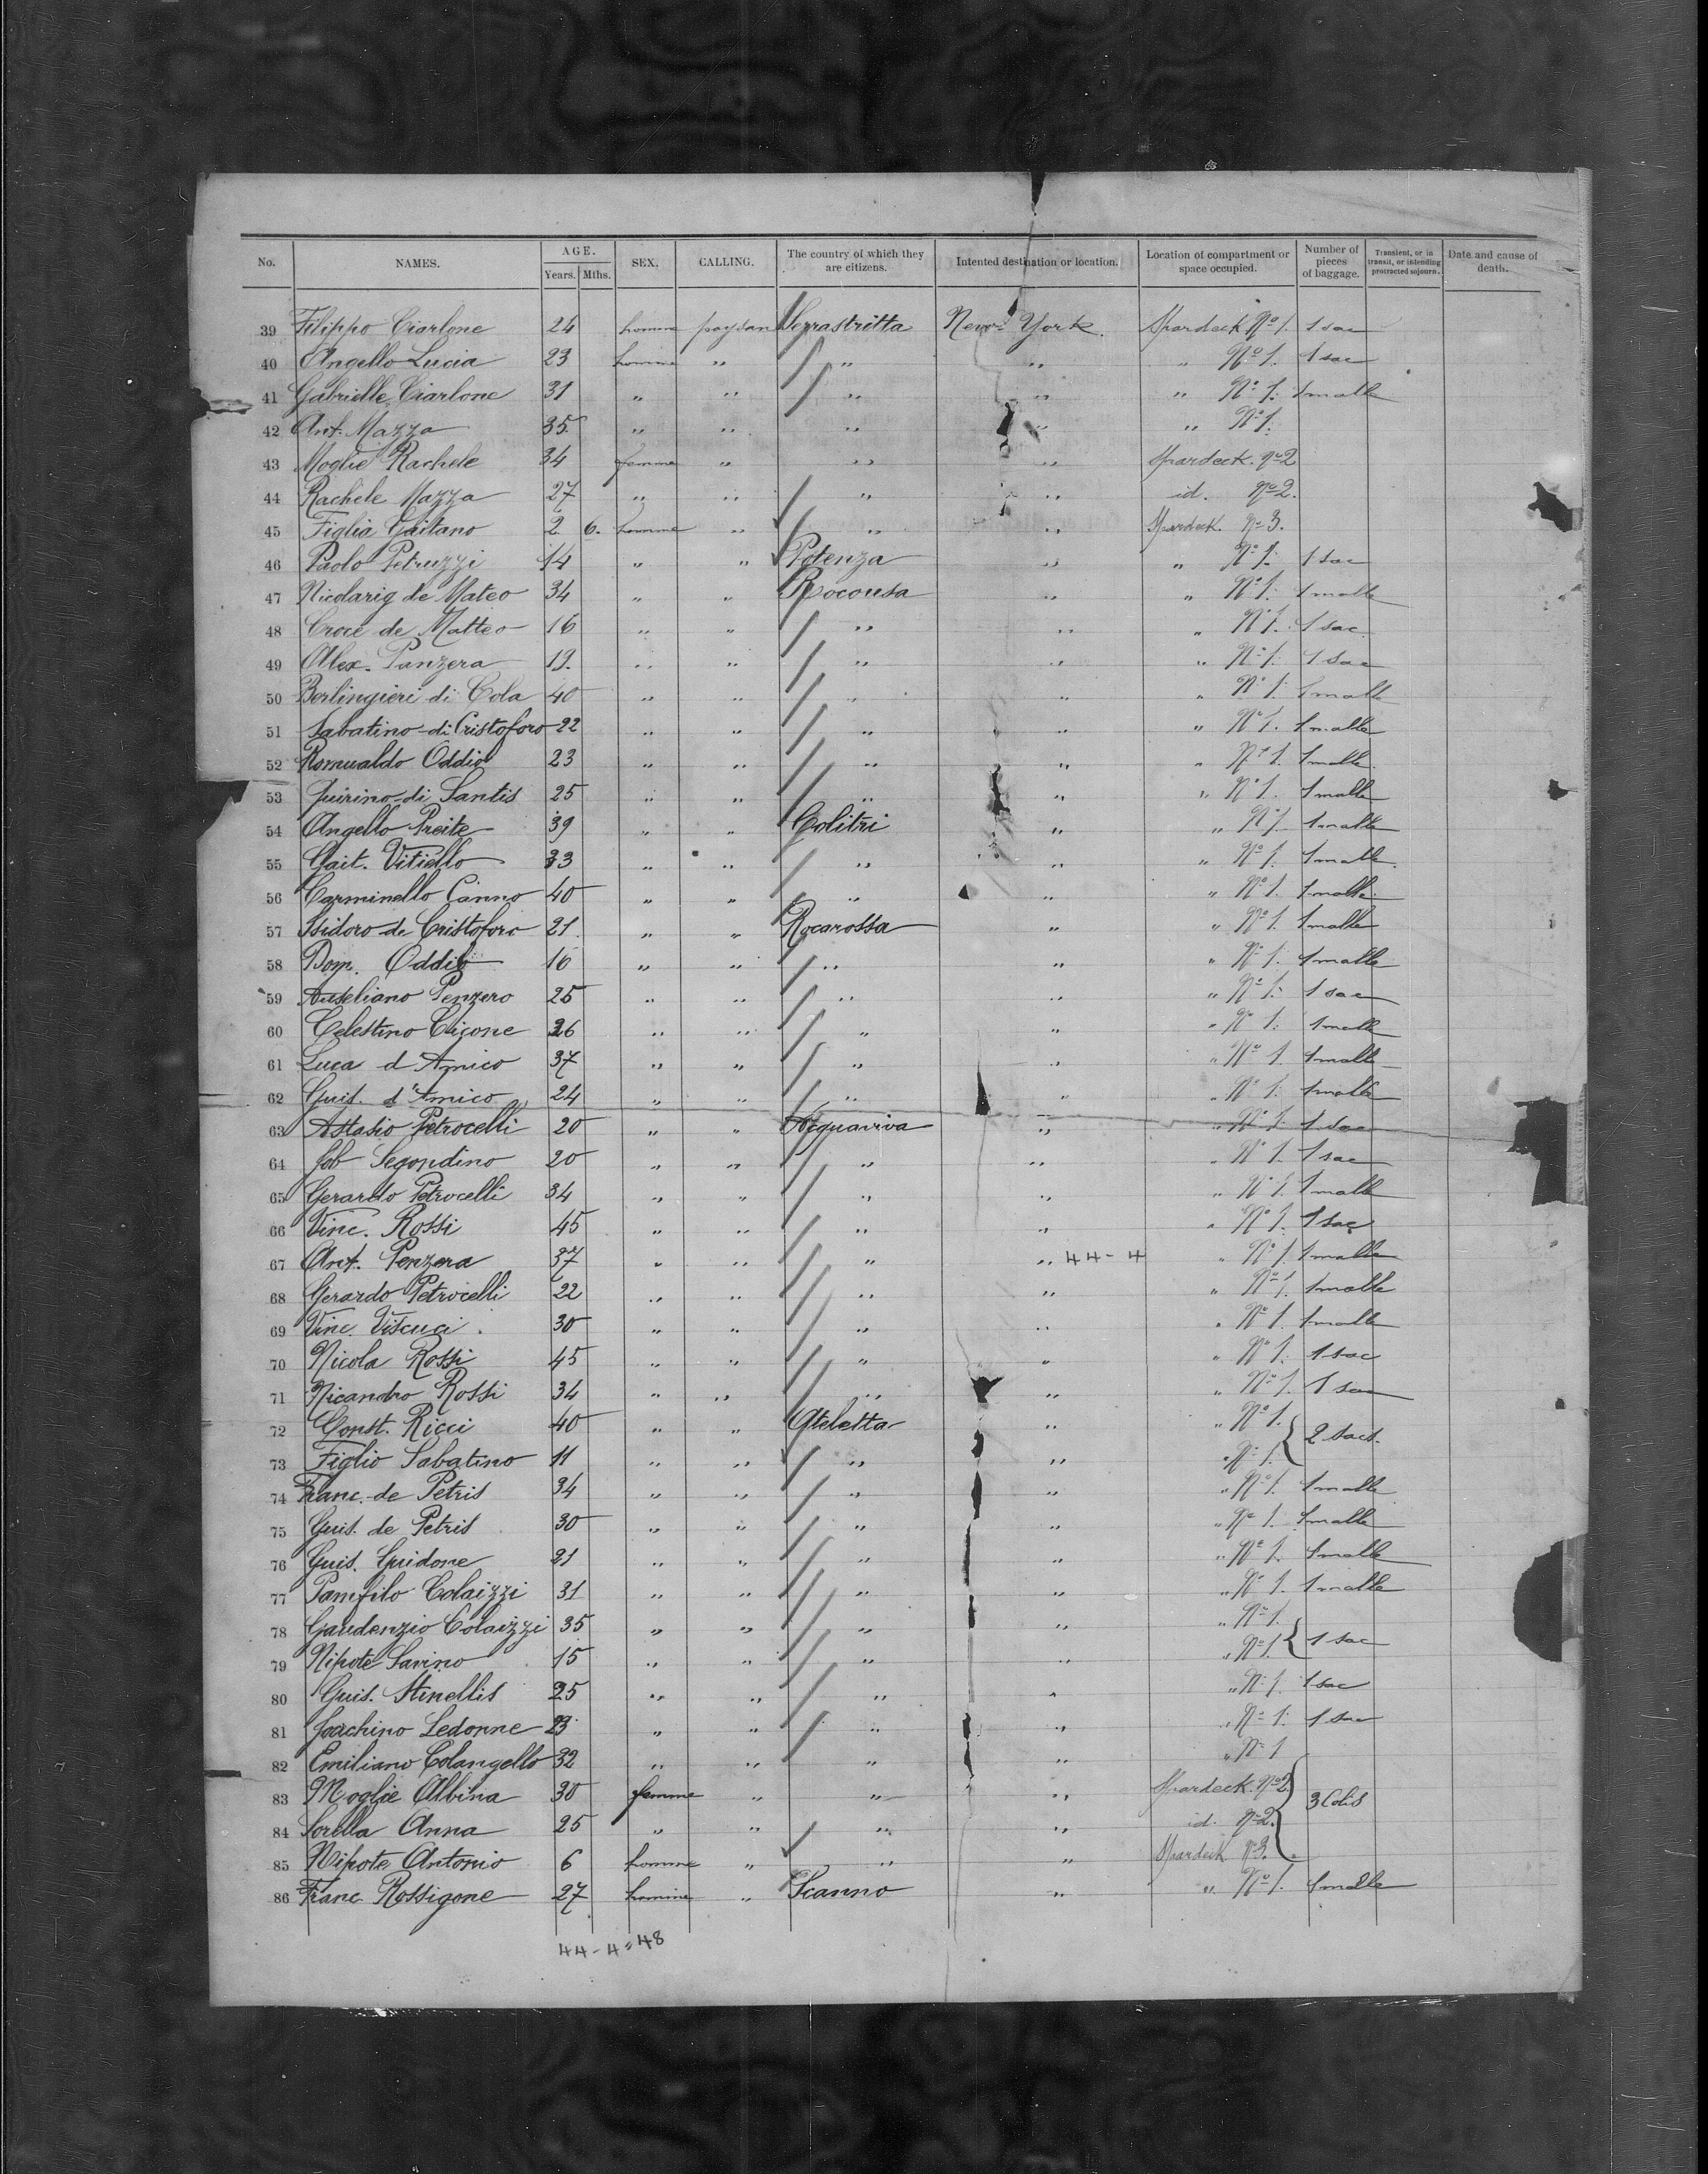 No. NAMES. AGE. Years. Mths. SEX. CALLING. The country of which they are citizens. Intented destination or location. Location of compartment or space occupied. Number of pieces of baggage. Transient, or in transit, or intending protracted sojourn. Date and cause of death.
39 Filippo Ciarlone 24 homme paysan Serrastritta New York Spardeck No 1. 1 sac
40 Angello Lucia 23 homme " " " " No 1. 1 sac
41 Gabrielle Ciarlone 31 " " " " " No 1. 1 malle
42 Ant. Mazza 35 " " " " " No 1.
43 Moglie Rachele 34 femme " " " Spardeck. no 2
44 Rachele Mazza 27 " " " " id. no 2.
45 Figlia Gaitano 2 6. homme " " " Spardeck. no 3.
46 Paolo Petruzzi 14 " " Potenza " " No 1. 1 sac
47 Nicolarig de Mateo 34 " " Rocousa " " No 1. 1 malle
48 Croce de Matteo 16 " " " " " No 1. 1 sac.
49 Alex. Panzera 19. " " " " " No 1. 1 sac
50 Berlingieri di Cola 40 " " " " " No 1. 1 malle
51 Sabatino di Cristoforo 22 " " " " " No 1. 1 malle
52 Romualdo Oddio 23 " " " " " No 1. 1 malle
53 Quirino di Santis 25 " " " " " No 1. 1 malle
54 Angello Preite 39 " " Colitri " " No 1. 1 malle
55 Gait. Vitiello 33 " " " " " No 1. 1 malle
56 Carminello Canno 40 " " " " " No 1. 1 malle
57 Isidoro de Cristoforo 21. " " Rocarossa " " No 1. 1 malle
58 Dom. Oddio 16 " " " " " No 1. 1 malle
59 Auseliano Penzero 25 " " " " " No 1. 1 sac
60 Celestino Cicone 26 " " " " " No 1. 1 malle
61 Luca d'Amico 37 " " " " " No 1. 1 malle
62 Guis. d'Amico 24 " " " " " No 1. 1 malle
63 Attasio Petrocelli 20 " " Acquaviva " " No 1. 1 sac
64 Job Segondino 20 " " " " " No 1. 1 sac
65 Gerardo Petrocelli 34 " " " " " No 1. 1 malle
66 Vinc. Rossi 45 " " " " " No 1. 1 sac
67 Ant. Penzera 37 " " " " 44-4 " No 1. 1 malle
68 Gerardo Petrocelli 22 " " " " " No 1. 1 malle
69 Vinc. Viscuci. 30 " " " " " No 1. 1 malle
70 Nicola Rossi 45 " " " " " No 1. 1 sac
71 Nicandro Rossi 34 " " " " " No 1. 1 sac
72 Const. Ricci 40 " " Ateletta " " No 1. 2 sacs.
73 Figlio Sabatino 11 " " " " " No 1.
74 Franc. de Petris 34 " " " " " No 1. 1 malle
75 Guis. de Petris 30 " " " " " no 1. 1 malle
76 Guis. Guidone 21 " " " " " No 1. 1 malle
77 Pamfilo Colaizzi 31 " " " " " No 1. 1 malle
78 Gaudenzio Colaizzi 35 " " " " " No 1. 1 sac
79 Nipote Savino 15 " " " " " No 1.
80 Guis. Stinellis 25 " " " " " No 1. 1 sac
81 Joachino Ledonne 23 " " " " " No 1. 1 sac
82 Emiliano Colangello 32 " " " " " No 1
83 Moglie Albina 30 femme " " " Spardeck. No 2 3 Colis
84 Sorella Anna 25 " " " " id. no 2.
85 Nipote Antonio 6 homme " " " Spardeck no 3.
86 Franc. Rossigone 27 homme " Scanno " " No 1. 1 malle
44-4=48